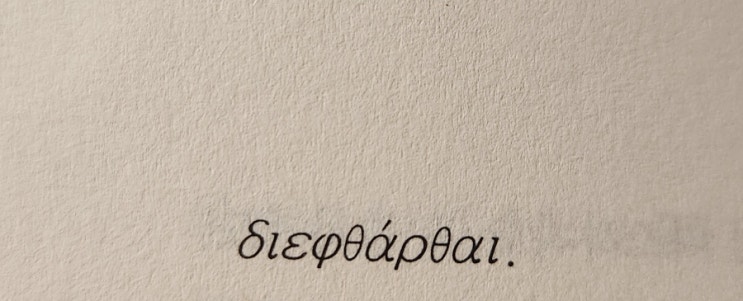 διεφθάρθαι.